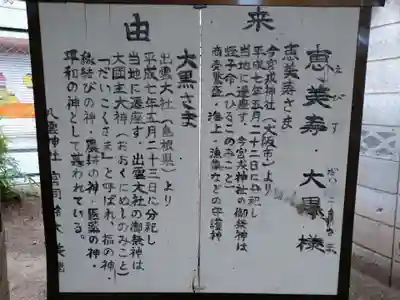 由来
恵美寿・大黒様
えびす
恵美寿さま
今宮戎神社(大阪市)より
平成七年五月二十二日に分祀し
当地に遷座す。今宮戎神社の御祭神は
蛭子命(ひるこのみこと)
商売繁盛・海上・漁業などの守護神
大黒さま
出雲大社(島根県)より
平成七年五月二十三日に分祀し
当地に遷座す。出雲大社の御祭神は
大国主大神(おおくにぬしのみこと)
「だいこくさま」と呼ばれ、福の神・
縁結びの神・農耕の神・医薬の神・
平和の神として慕われている。
八雲神社 宮司